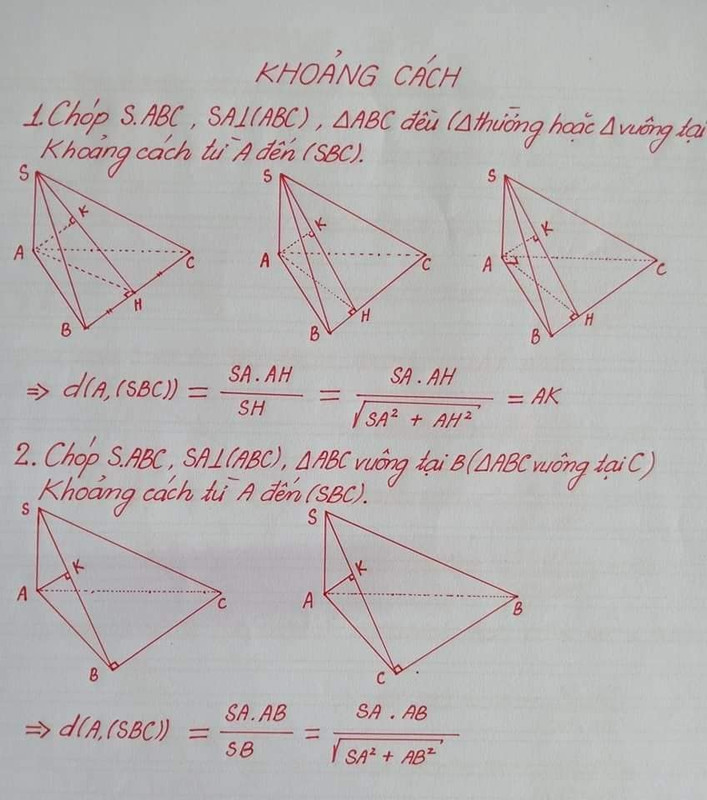 KHOẢNG CÁCH
1. Chóp S.ABC , SA⊥(ABC) , ΔABC đều (Δthường hoặc Δvuông tại
Khoảng cách từ A đến (SBC).
S K A C H B
S K A C H B
S K A C H B
⇒ d(A,(SBC)) = SA.AH / SH = SA.AH / √(SA² + AH²) = AK
2. Chóp S.ABC, SA⊥(ABC), ΔABC vuông tại B (ΔABC vuông tại C)
Khoảng cách từ A đến (SBC).
S K A C B
S K A B C
⇒ d(A,(SBC)) = SA.AB / SB = SA . AB / √(SA² + AB²)